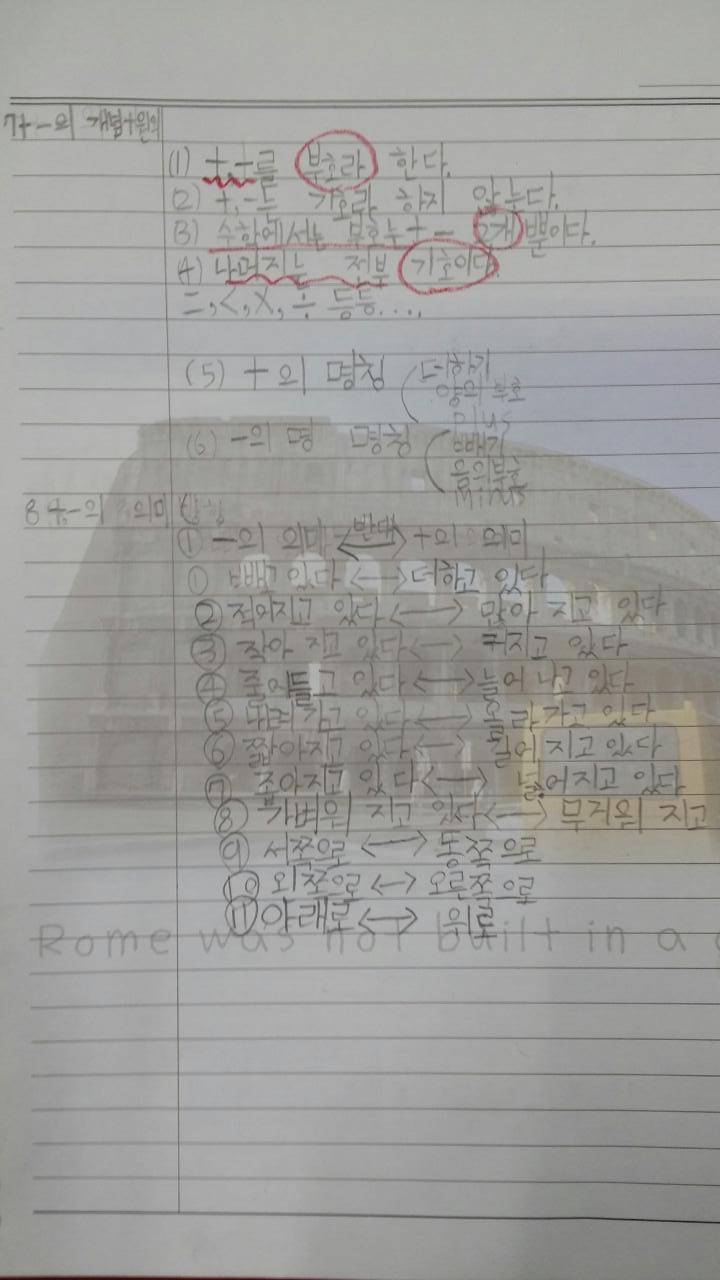 7 + - 의 개념+원리
(1) +,-를 부호라 한다.
(2) +,-는 기호라 하지 않는다.
(3) 수학에서는 부호는 + - 2개 뿐이다.
(4) 나머지는 전부 기호이다.
=,<,X,÷ 등등....,
(5) +의 명칭 더하기
양의 부호
Plus
(6) -의 명 명칭 빼기
음의부호
Minus
8 +,-의 의미
① -의 의미 <반대> +의 의미
① 빼고 있다 <-> 더하고 있다
② 적어지고 있다 <-> 많아 지고 있다
③ 작아 지고 있다 <-> 커지고 있다
④ 줄어들고 있다 <-> 늘어 나고 있다
⑤ 내려 가고 있다 <-> 올라가고 있다
⑥ 짧아지고 있다 <-> 길어 지고 있다
⑦ 조아지고 있다 <-> 넓어지고 있다
⑧ 가벼워 지고 있다 <-> 무거워 지고
⑨ 서쪽으로 <-> 동쪽으로
⑩ 왼쪽으로 <-> 오른쪽으로
⑪ 아래로 <-> 위로
Rome was not built in a